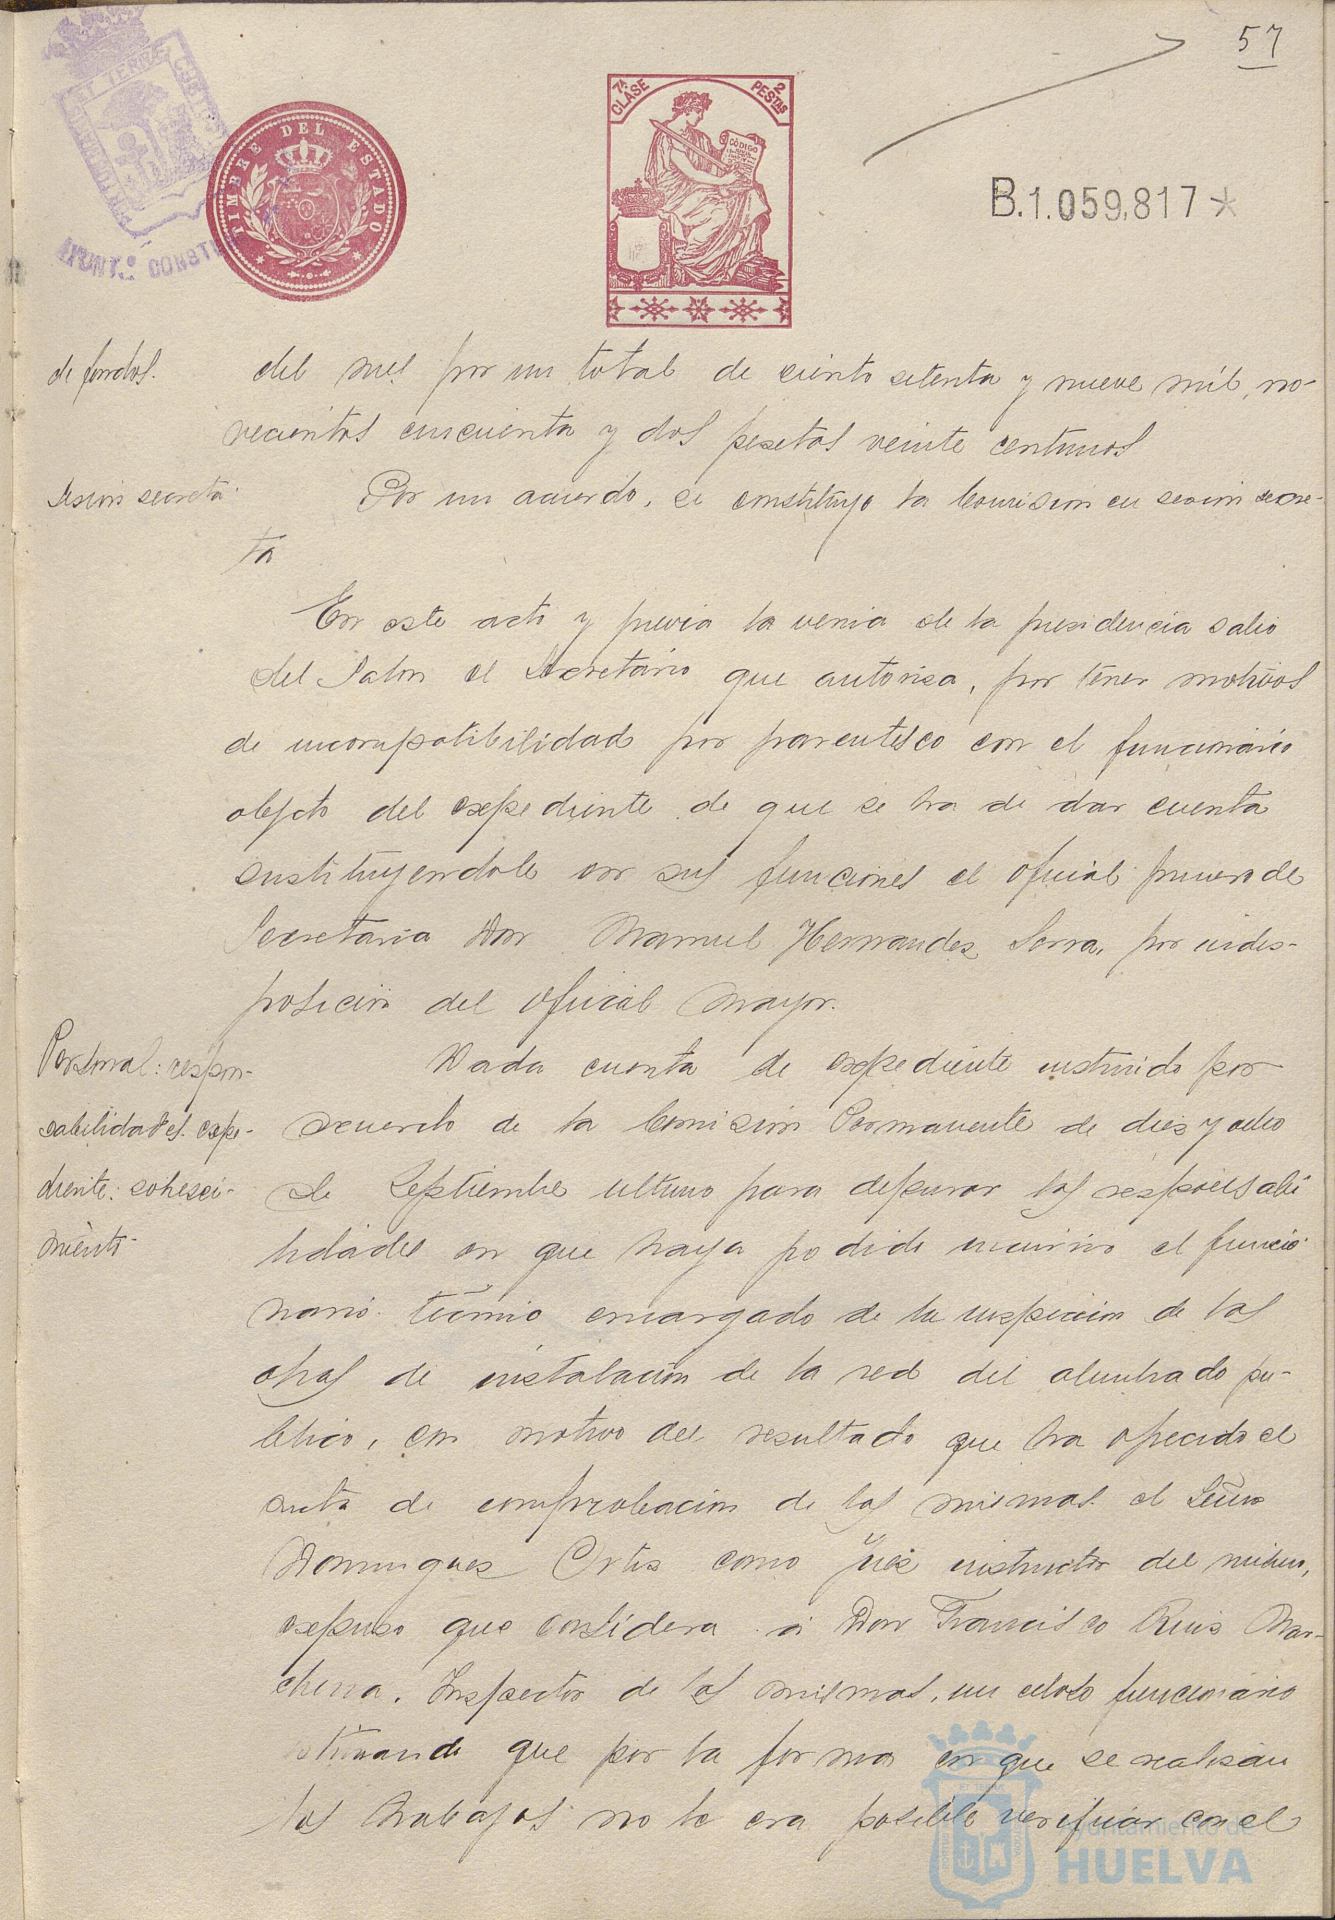 57
TIMBRE DEL ESTADO
7ª CLASE
2 PESTAS
CÓDIGO
B.1.059.817*
AYUNT.º CONST
de fondos.
del mes por un total de ciento setenta y nueve mil, no-
vecientas cincuenta y dos pesetas veinte centimos
Sesión secreta
Por un acuerdo, se constituyo la Comision en sesion secre-
ta
En este acto y previa la venia de la presidencia salio
del Salon el Secretario que autorisa, por tener motivos
de incompatibilidad por parentesco con el funcionario
objeto del expediente de que se ha de dar cuenta
sustituyendole en sus funciones el oficial primero de
Secretaria Don Manuel Hernandes Serra, por indis-
posición del oficial Mayor.
Personal: respon-
sabilidades. expe-
diente: sobresei-
miento-
Dada cuenta de expediente instruido por
acuerdo de la Comisión Permanente de dies y ocho
de Septiembre ultimo para depurar las responsabi
lidades en que haya podido incurrir el funcio
nario tecnico encargado de la inspeccion de las
obras de instalación de la red del alumbrado pu-
blico, con motivo del resultado que ha ofrecido el
acta de comprobacion de las mismas. el Señor
Domingues Ortis como Jues instructor del mismo,
expuso que considera a Don Francisco Ruis Mar-
chena, Inspector de las mismas, un celoso funcionario
estimando que por la forma en que se realisan
los trabajos no le era posible verificar con el
Ayuntamiento de
HUELVA